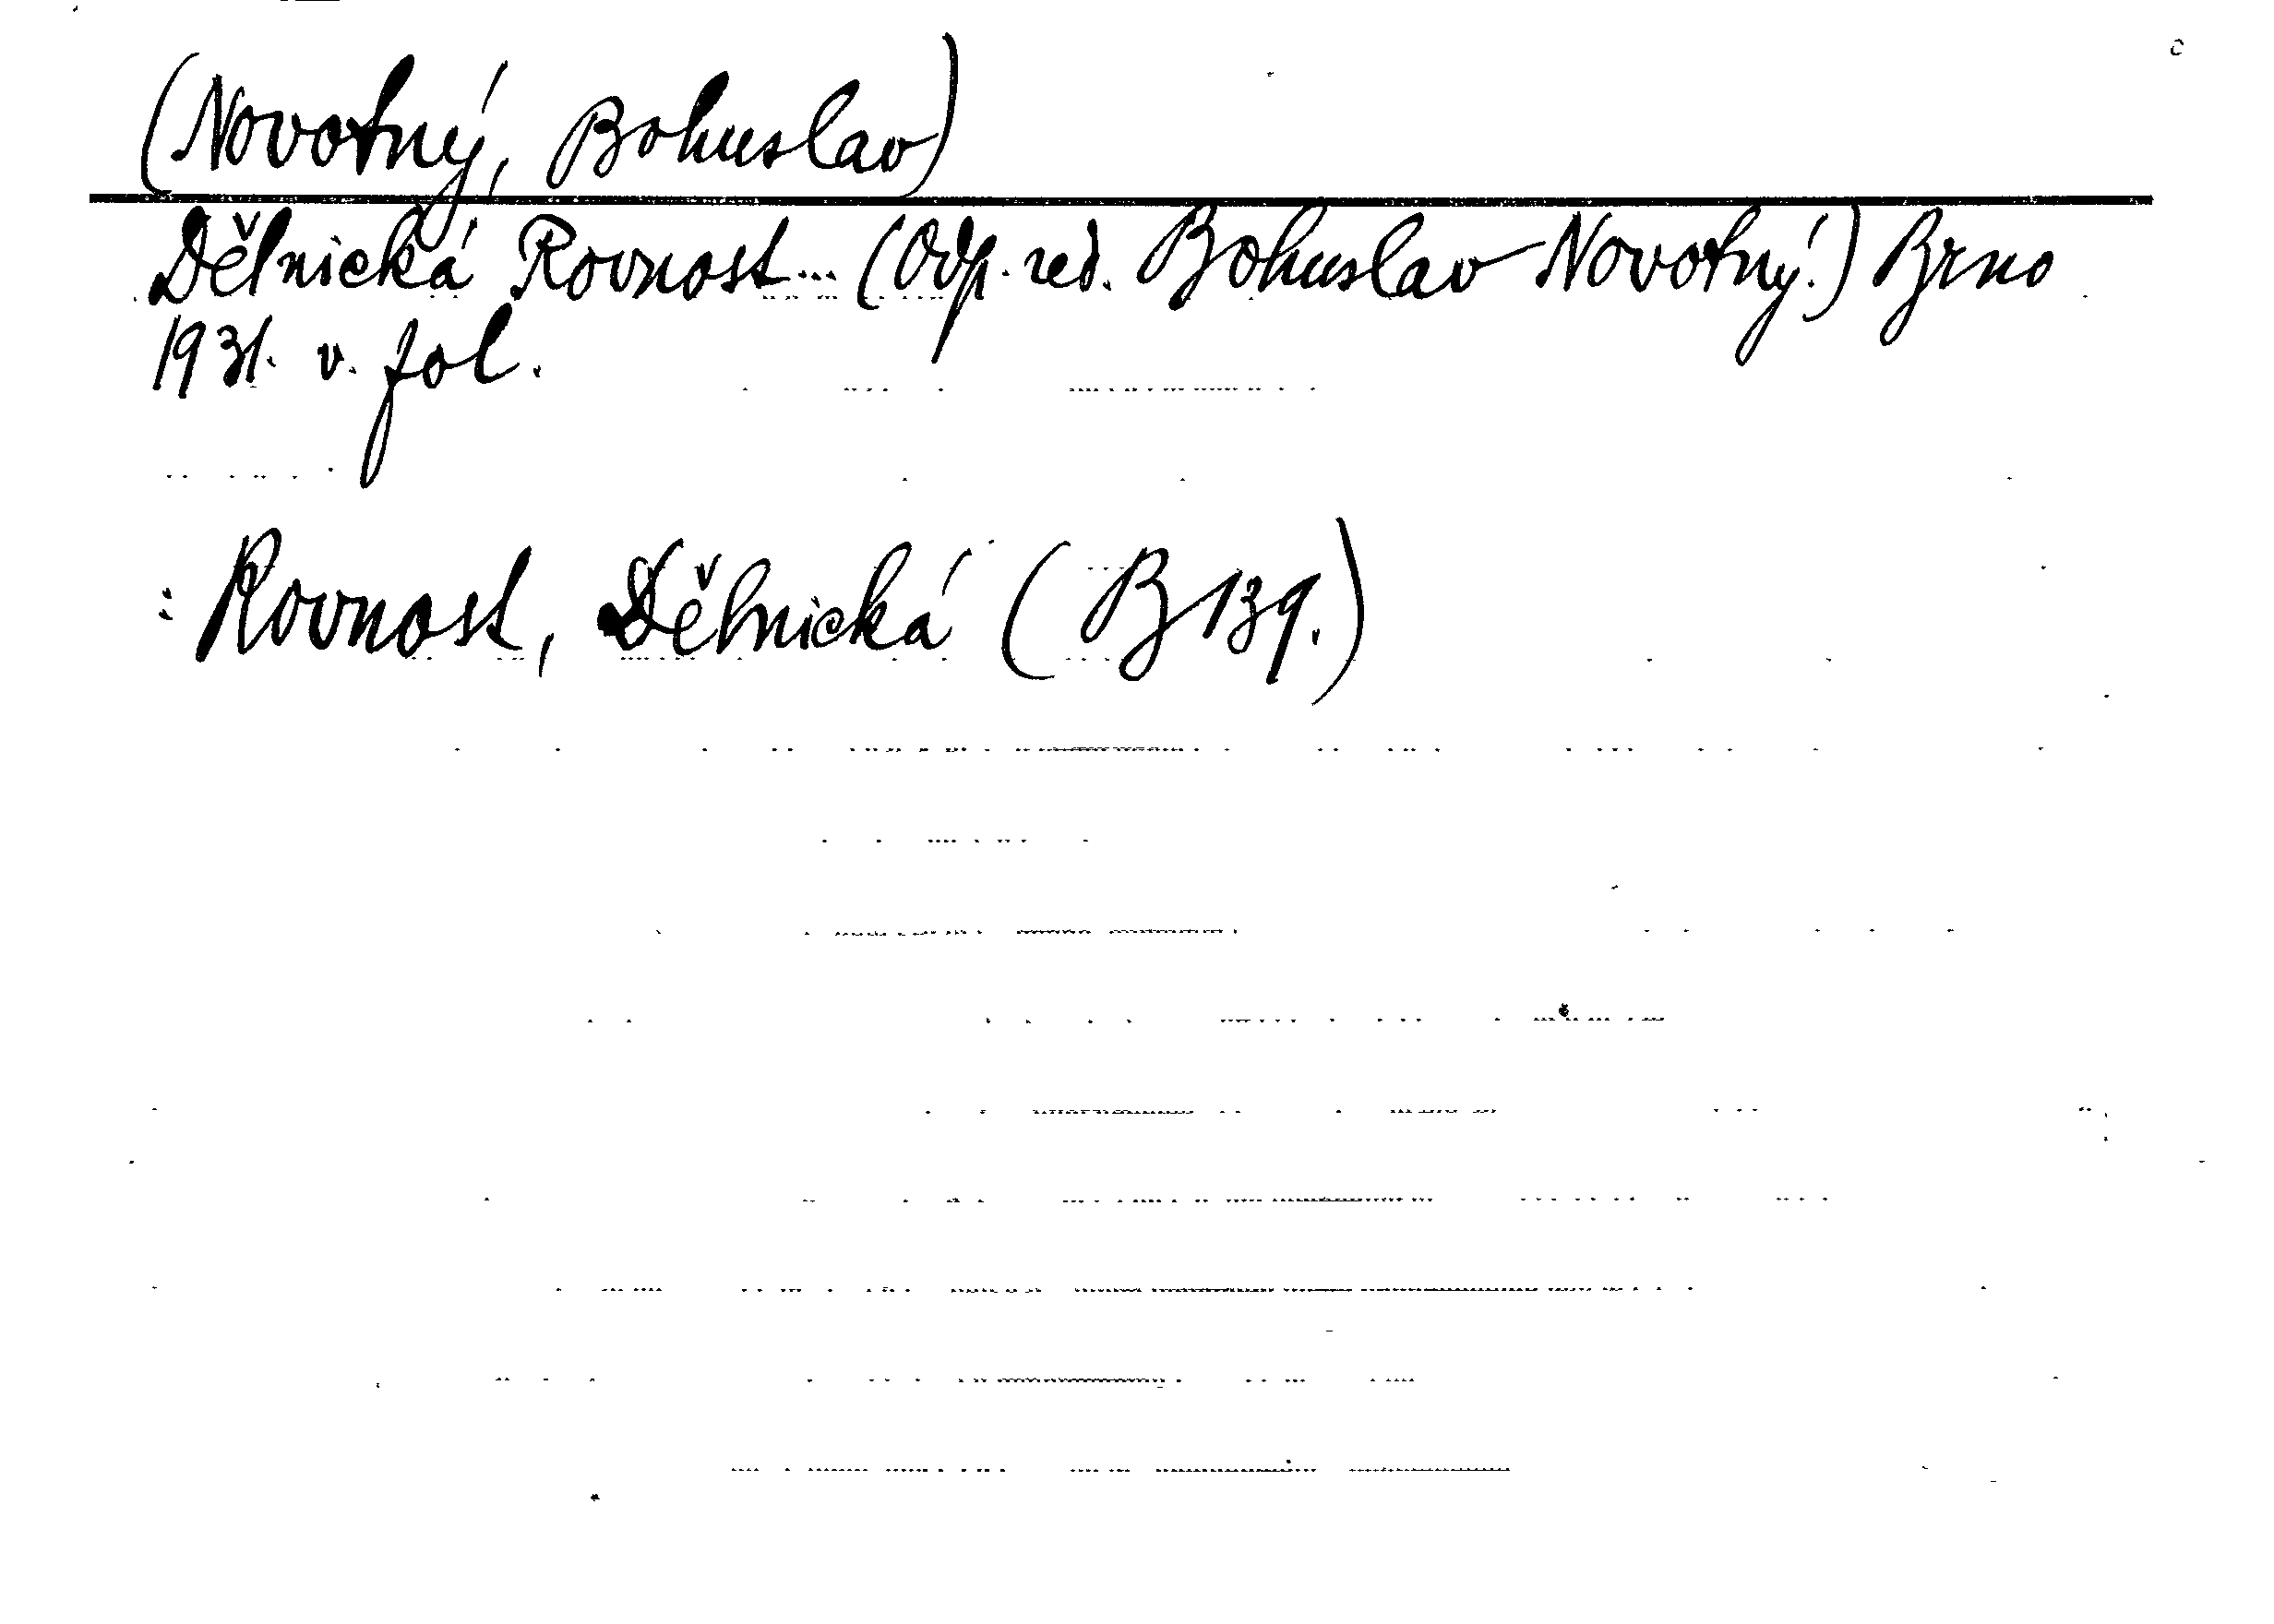 (Novotný, Bohuslav)
Dělnická Rovnost... (Odp. red. Bohuslav Novotný.) Brno
1931. v. fol.
: Rovnost, Dělnická (B 139.)